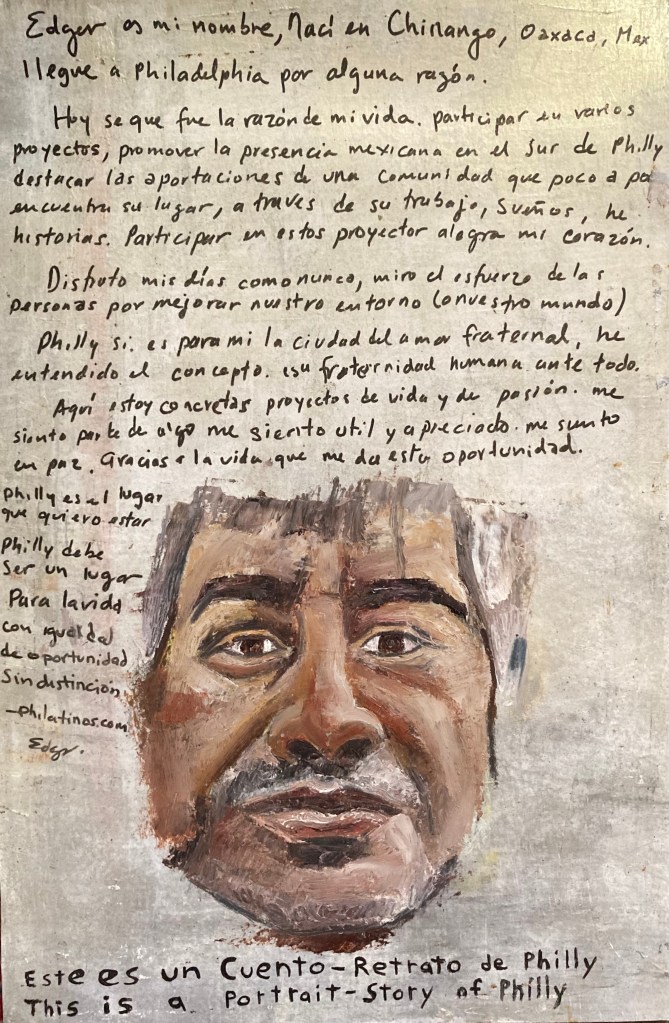 Edgar es mi nombre, Nací en Chinango, Oaxaca, Mex
llegue a Philadelphia por alguna razón.
Hoy se que fue la razón de mi vida. participar en varios
proyectos, promover la presencia mexicana en el sur de Philly
destacar las aportaciones de una comunidad que poco a po
encuentra su lugar, a través de su trabajo, sueños, he
historias. Participar en estos proyector alegra mi corazón.
Disfruto mis días como nunca, miro el esfuerzo de las
personas por mejorar nuestro entorno (o nuestro mundo)
Philly si. es para mi la ciudad del amor fraternal, he
entendido el concepto. esu fraternidad humana ante todo.
Aquí estoy concretas proyectos de vida y de pasión. me
siento parte de algo me siento util y apreciado. me siento
en paz. Gracias a la vida que me da esta oportunidad.
Philly es el lugar
que quiero estar
Philly debe
ser un lugar
Para la vida
con igualdad
de oportunidad
Sin distinción
-philatinos.com
Edgar.
Este es un Cuento-Retrato de Philly
This is a Portrait-Story of Philly